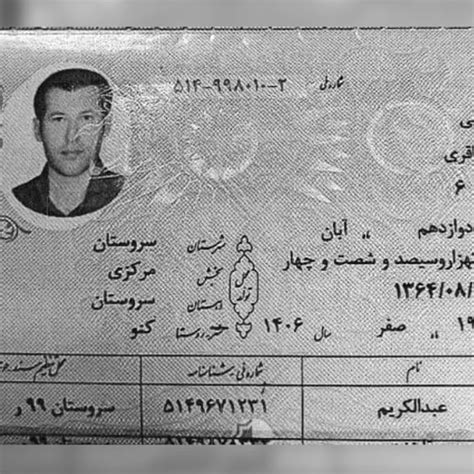 شماره ملی ۵۱۴-۹۹۸۰۱۰-۲
ی
قری
۶
دوازدهم ,, آبان
هزاروسیصد و شصت و چهار
۱۳۶۴/۰۸/
۱۹ ,, صفر سال ۱۴۰۶
محل تولد
شهرستان سروستان
بخش مرکزی
دهستان سروستان
شهر روستا کنو
نام شماره ملی شناسنامه
عبدالکریم ۵۱۴۹۶۷۱۲۳۱ سروستان ۹۹ ر